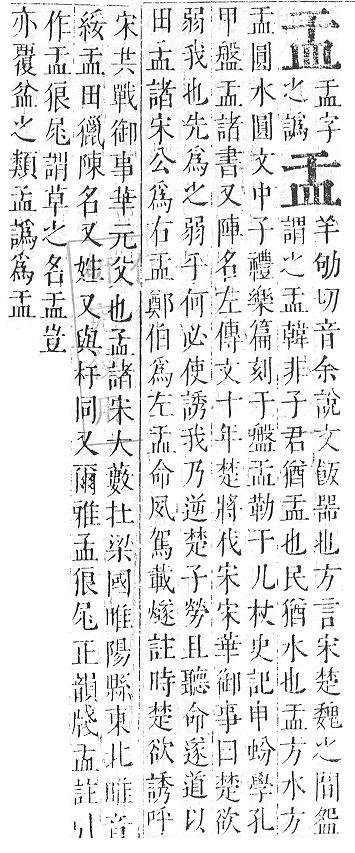 盂字
之譌
盂羊劬切音余說文飯器也方言宋楚魏之間㿻
謂之盂韓非子君猶盂也民猶水也盂方水方
盂圓水圓文中子禮樂篇刻于盤盂勒于几杖史記申蚡學孔
甲盤盂諸書又陣名左傳文十年楚將伐宋宋華御事曰楚欲
弱我也先爲之弱乎何必使誘我乃逆楚子勞且聽命遂道以
田孟諸宋公爲右盂鄭伯爲左盂命夙駕載燧註時楚欲誘呼
宋共戰御事華元父也孟諸宋大藪在梁國睢陽縣東北睢音
綏盂田獵陳名又姓又與杅同又爾雅孟狼尾正韻牋盂註引
作盂狼尾謂草之名盂豈
亦覆盆之類孟譌爲盂